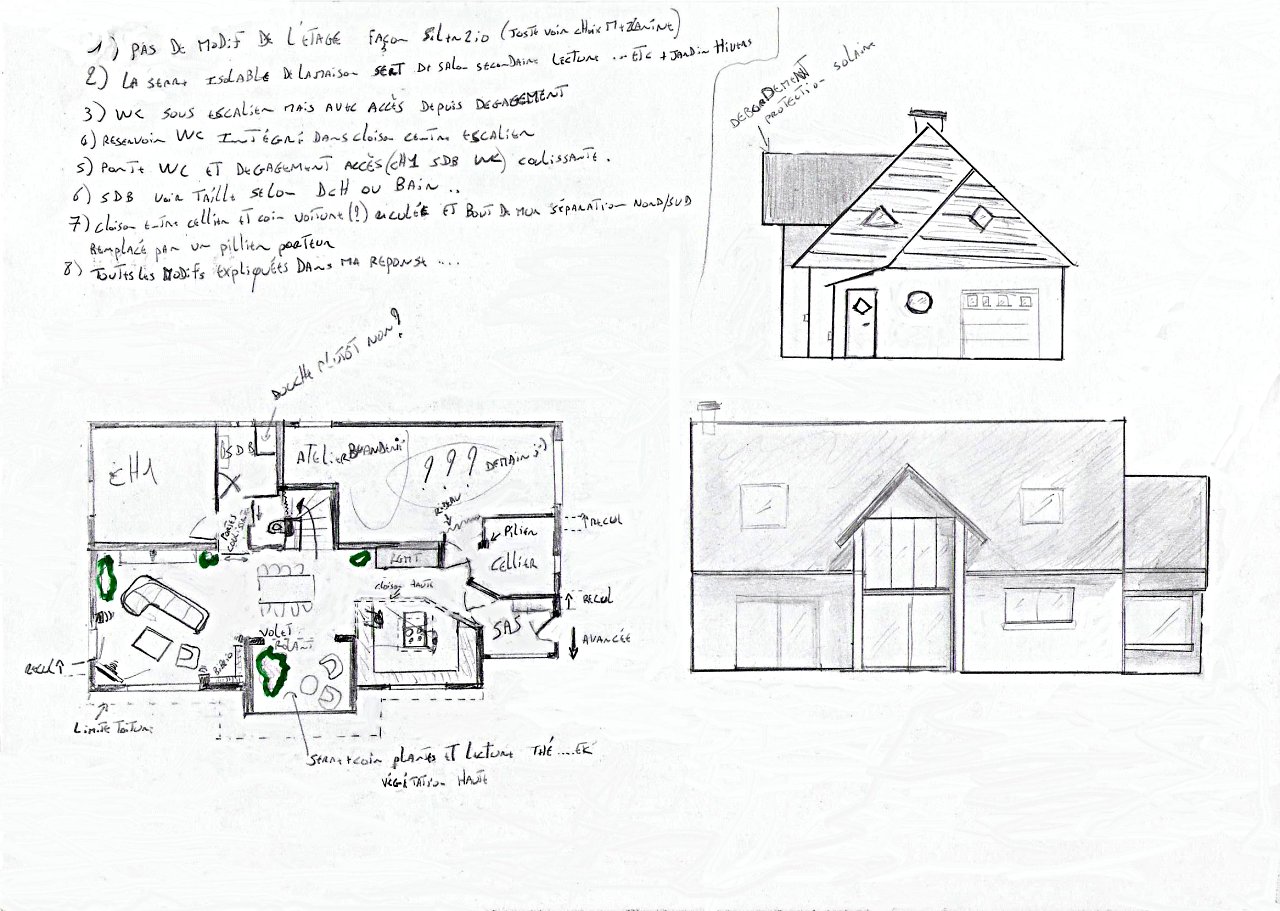 1) PAS DE MODIF DE L'ÉTAGE FAÇON SILENZIO (JUSTE VOIR CHOIX MEZZANINE)
2) LA SERRE ISOLABLE DE LA MAISON SERT DE SALON SECONDAIRE LECTURE ... ETC + JARDIN HIVERS
3) WC SOUS ESCALIER MAIS AVEC ACCÈS DEPUIS DEGAGEMENT
4) RESERVOIR WC INTÉGRÉ DANS CLOISON CENTRE ESCALIER
5) PORTE WC ET DEGAGEMENT ACCÈS (CH1 SDB WC) COULISSANTE.
6) SDB VOIR TAILLE SELON DCH OU BAIN ..
7) CLOISON ENTRE CELLIER ET COIN VOITURE (?) RECULÉE ET BOUT DE MUR SÉPARATION NORD/SUD
REMPLACÉ PAR UN PILLIER PORTEUR
8) TOUTES LES MODIFS EXPLIQUÉES DANS MA REPONSE ....
DEBORDEMENT
PROTECTION SOLAIRE
DOUCHE PLUTÔT NON?
CH1
SDB
ATELIER
BUANDERIE
???
DEMAIN ;-)
PORTES
COULISSANTES
RIDEAU
PILIER
CELLIER
RECUL
RGMT
CLOISON HAUTE
RECUL
SAS
AVANCÉE
VOLET
ROLANT
RECUL
LIMITE TOITURE
SERRE + COIN PLANTES ET LECTURE THÉ ....ETC
VÉGÉTATION HAUTE